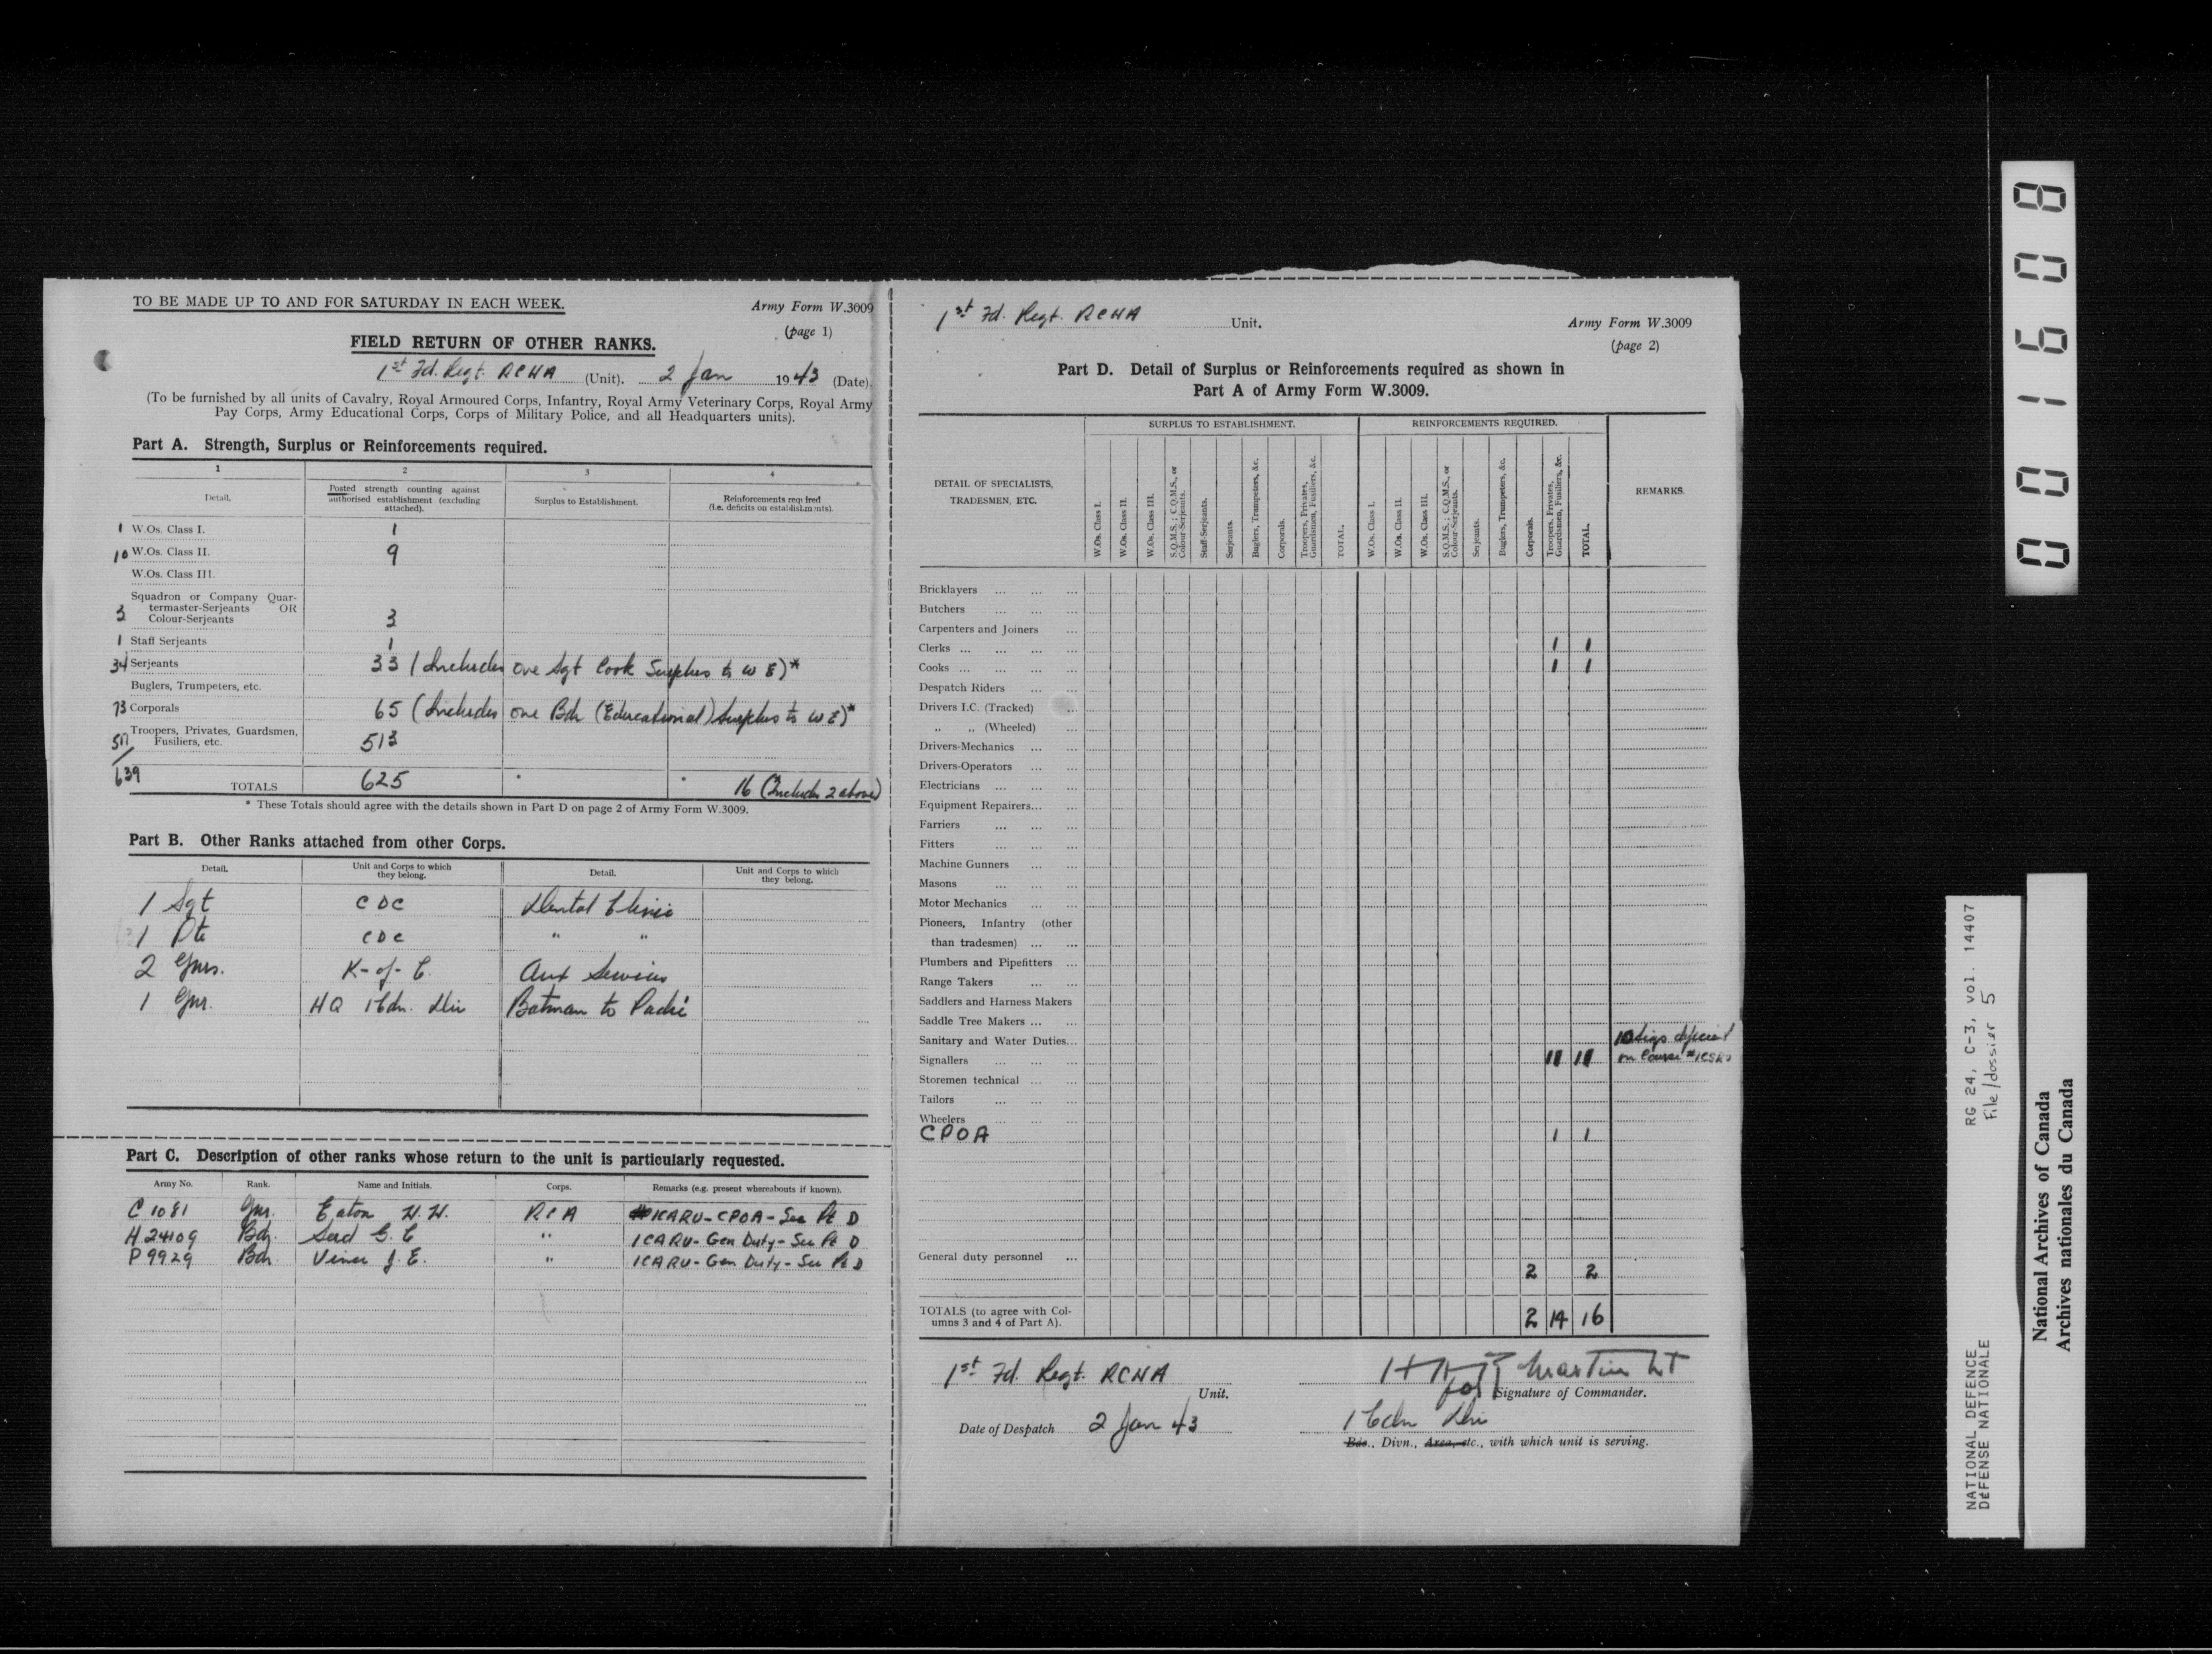 TO BE MADE UP TO AND FOR SATURDAY IN EACH WEEK.
Army Form W.3009
(page 1)
FIELD RETURN OF OTHER RANKS.
1st Fd. Regt. RCHA (Unit). 2 Jan 1943 (Date).
(To be furnished by all units of Cavalry, Royal Armoured Corps, Infantry, Royal Army Veterinary Corps, Royal Army
Pay Corps, Army Educational Corps, Corps of Military Police, and all Headquarters units).
Part A. Strength, Surplus or Reinforcements required.
1 2 3 4
Detail.
Posted strength counting against
authorised establishment (excluding
attached).
Surplus to Establishment.
Reinforcements required
(i.e. deficits on establishments).
1 W.Os. Class I. 1
10 W.Os. Class II. 9
W.Os. Class III.
Squadron or Company Quar-
termaster-Serjeants OR
3 Colour-Serjeants 3
1 Staff Serjeants 1
34 Serjeants 33 (Includes one Sgt Cook Surplus to W E)*
Buglers, Trumpeters, etc.
73 Corporals 65 (Includes one Bdr (Educational) Surplus to W E)*
517 Troopers, Privates, Guardsmen,
Fusiliers, etc. 513
639 TOTALS 625 * * 16 (Includes 2 above)
* These Totals should agree with the details shown in Part D on page 2 of Army Form W.3009.
Part B. Other Ranks attached from other Corps.
Detail.
Unit and Corps to which
they belong.
Detail.
Unit and Corps to which
they belong.
1 Sgt CDC Dental Clinic
1 Pte CDC " "
2 Gnrs. K-of-C. Aux Services
1 Gnr. HQ 1 Cdn. Div Batman to Padré
Part C. Description of other ranks whose return to the unit is particularly requested.
Army No. Rank. Name and Initials. Corps. Remarks (e.g. present whereabouts if known).
C 1081 Gnr. Eaton H.H. RCA 1CARU-CPOA-See Pt D
H 24109 Bdr. " 1CARU-Gen Duty-See Pt D
P 9929 Bdr. J.E. " 1CARU-Gen Duty-See Pt D
1st Fd. Regt. RCHA Unit.
Army Form W.3009
(page 2)
Part D. Detail of Surplus or Reinforcements required as shown in
Part A of Army Form W.3009.
DETAIL OF SPECIALISTS,
TRADESMEN, ETC.
SURPLUS TO ESTABLISHMENT.
W.Os. Class I.
W.Os. Class II.
W.Os. Class III.
S.Q.M.S.; C.Q.M.S., or
Colour-Serjeants.
Staff-Serjeants.
Serjeants.
Buglers, Trumpeters, &c.
Corporals.
Troopers, Privates,
Guardsmen, Fusiliers, &c.
TOTAL.
REINFORCEMENTS REQUIRED.
W.Os. Class I.
W.Os. Class II.
W.Os. Class III.
S.Q.M.S.; C.Q.M.S., or
Colour-Serjeants.
Serjeants.
Buglers, Trumpeters, &c.
Corporals.
Troopers, Privates,
Guardsmen, Fusiliers, &c.
TOTAL.
REMARKS.
Bricklayers ... ... ...
Butchers ... ... ...
Carpenters and Joiners ...
Clerks ... ... ... ... 1 1
Cooks ... ... ... ... 1 1
Despatch Riders ... ...
Drivers I.C. (Tracked) ...
" " (Wheeled) ...
Drivers-Mechanics ... ...
Drivers-Operators ... ...
Electricians ... ... ...
Equipment Repairers... ...
Farriers ... ... ...
Fitters ... ... ...
Machine Gunners ... ...
Masons ... ... ...
Motor Mechanics ... ...
Pioneers, Infantry (other
than tradesmen) ... ...
Plumbers and Pipefitters ...
Range Takers ... ...
Saddlers and Harness Makers
Saddle Tree Makers ... ...
Sanitary and Water Duties...
10 Sigs deficient
Signallers ... ... ... 11 11 on Course #1CSRU
Storemen technical ... ...
Tailors ... ... ...
Wheelers ... ... ...
CPOA 1 1
General duty personnel ...
2 2
TOTALS (to agree with Col-
umns 3 and 4 of Part A). 2 14 16
1st Fd. Regt. RCHA
Unit.
Martin Lt
for Signature of Commander.
Date of Despatch 2 Jan 43
1 Cdn Div
Bde., Divn., Area, etc., with which unit is serving.
001608
NATIONAL DEFENCE RG 24, C-3, vol. 14407
DÉFENSE NATIONALE File/dossier 5
National Archives of Canada
Archives nationales du Canada